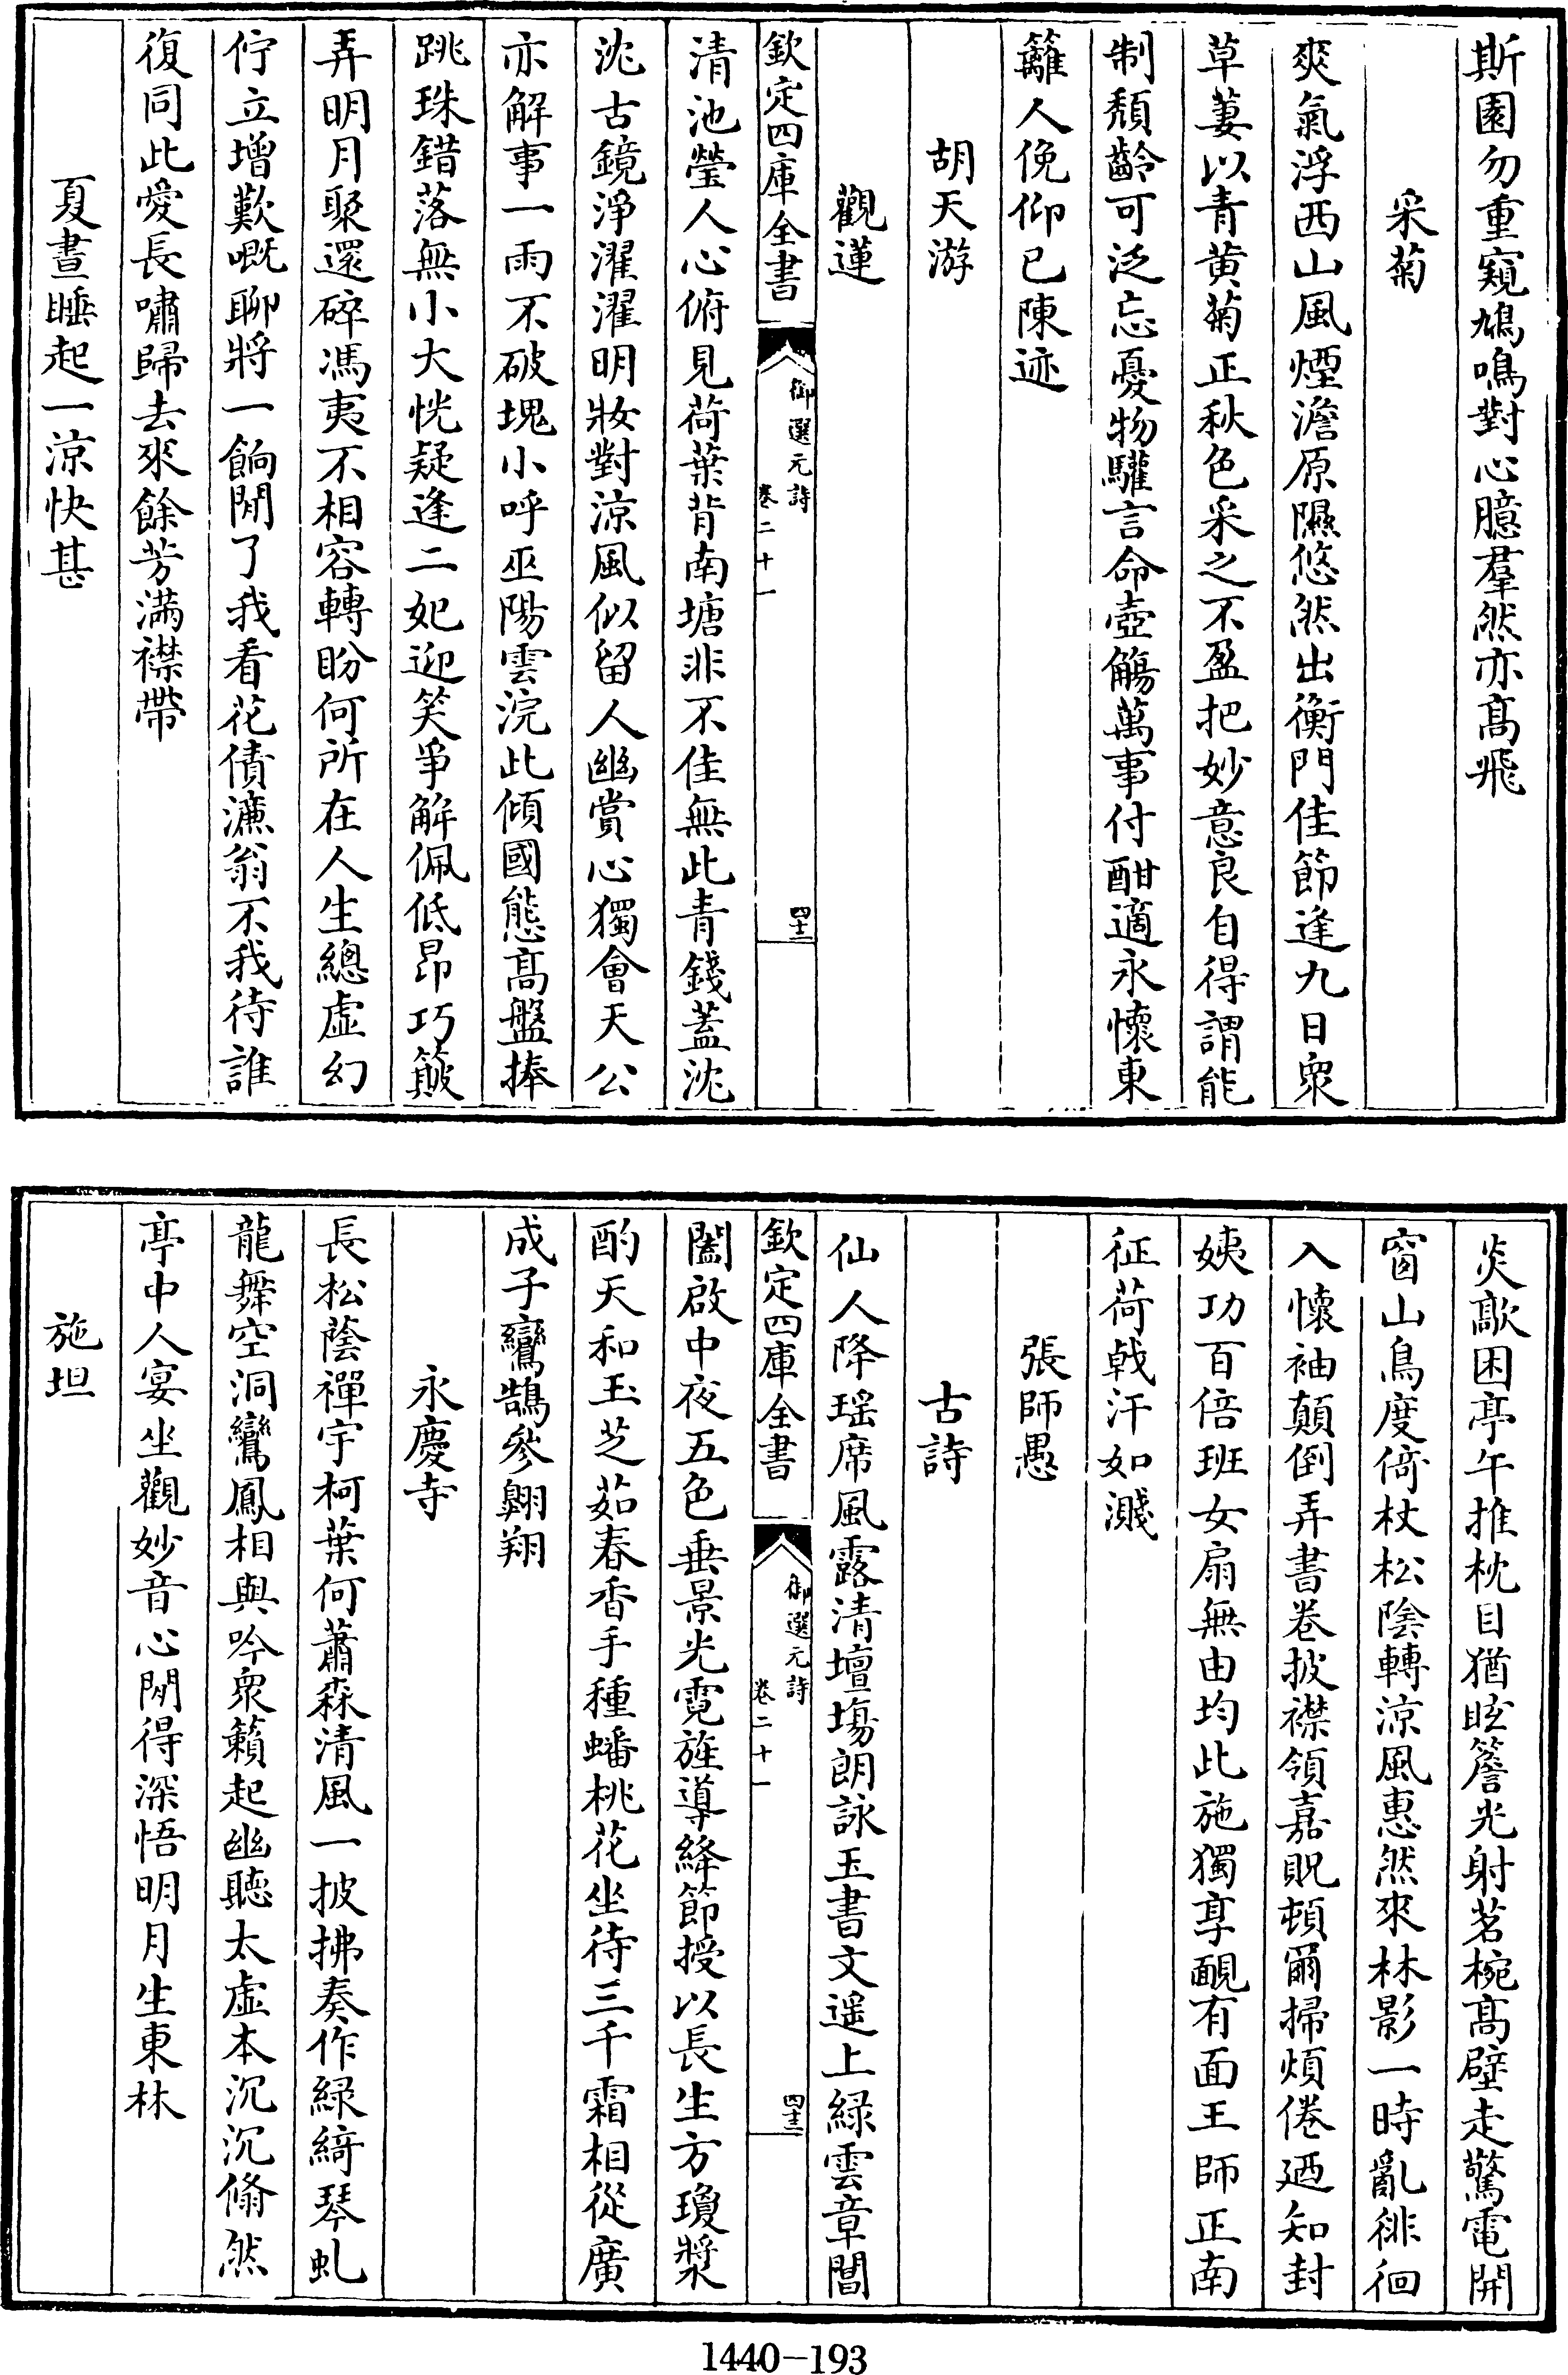 斯園勿重窺鳩鳴對心臆羣然亦髙飛
采菊
爽氣浮西山風煙澹原隰悠然出衡門佳節逢九日衆
草萋以青黄菊正秋色采之不盈把妙意良自得謂能
制頽齡可泛忘憂物驩言命壺觴萬事付酣適永懷東
籬人俛仰已陳迹
胡天游
觀蓮
欽定四庫全書
御選元詩
卷二十一
四十二
清池瑩人心俯見荷葉背南塘非不佳無此青錢蓋沈
沈古鏡淨濯濯明妝對涼風似留人幽賞心獨會天公
亦解事一雨不破塊小呼巫陽雲浣此傾國態髙盤捧
跳珠錯落無小大恍疑逢二妃迎笑爭解佩低昂巧簸
弄明月聚還碎馮夷不相容轉盼何所在人生總虛幻
佇立增歎嘅聊將一餉閒了我看花債濂翁不我待誰
復同此愛長嘯歸去來餘芳滿襟帶
夏晝睡起一涼快甚
炎歊困亭午推枕目猶眩簷光射茗椀髙壁走驚電開
窗山鳥度倚杖松陰轉涼風惠然來林影一時亂徘徊
入懷袖顛倒弄書卷披襟領嘉貺頓爾掃煩倦廼知封
姨功百倍班女扇無由均此施獨享靦有面王師正南
征荷戟汗如濺
張師愚
古詩
仙人降瑶席風露清壇塲朗詠玉書文遥上緑雲章閶
欽定四庫全書
御選元詩
卷二十一
四十三
闔啟中夜五色垂景光霓旌導絳節授以長生方瓊漿
酌天和玉芝茹春香手種蟠桃花坐待三千霜相從廣
成子鸞鵠參翺翔
永慶寺
長松蔭禪宇柯葉何蕭森清風一披拂奏作緑綺琴虬
龍舞空洞鸞鳳相與吟衆籟起幽聽太虛本沉沉翛然
亭中人宴坐觀妙音心閒得深悟明月生東林
施坦
1440-193